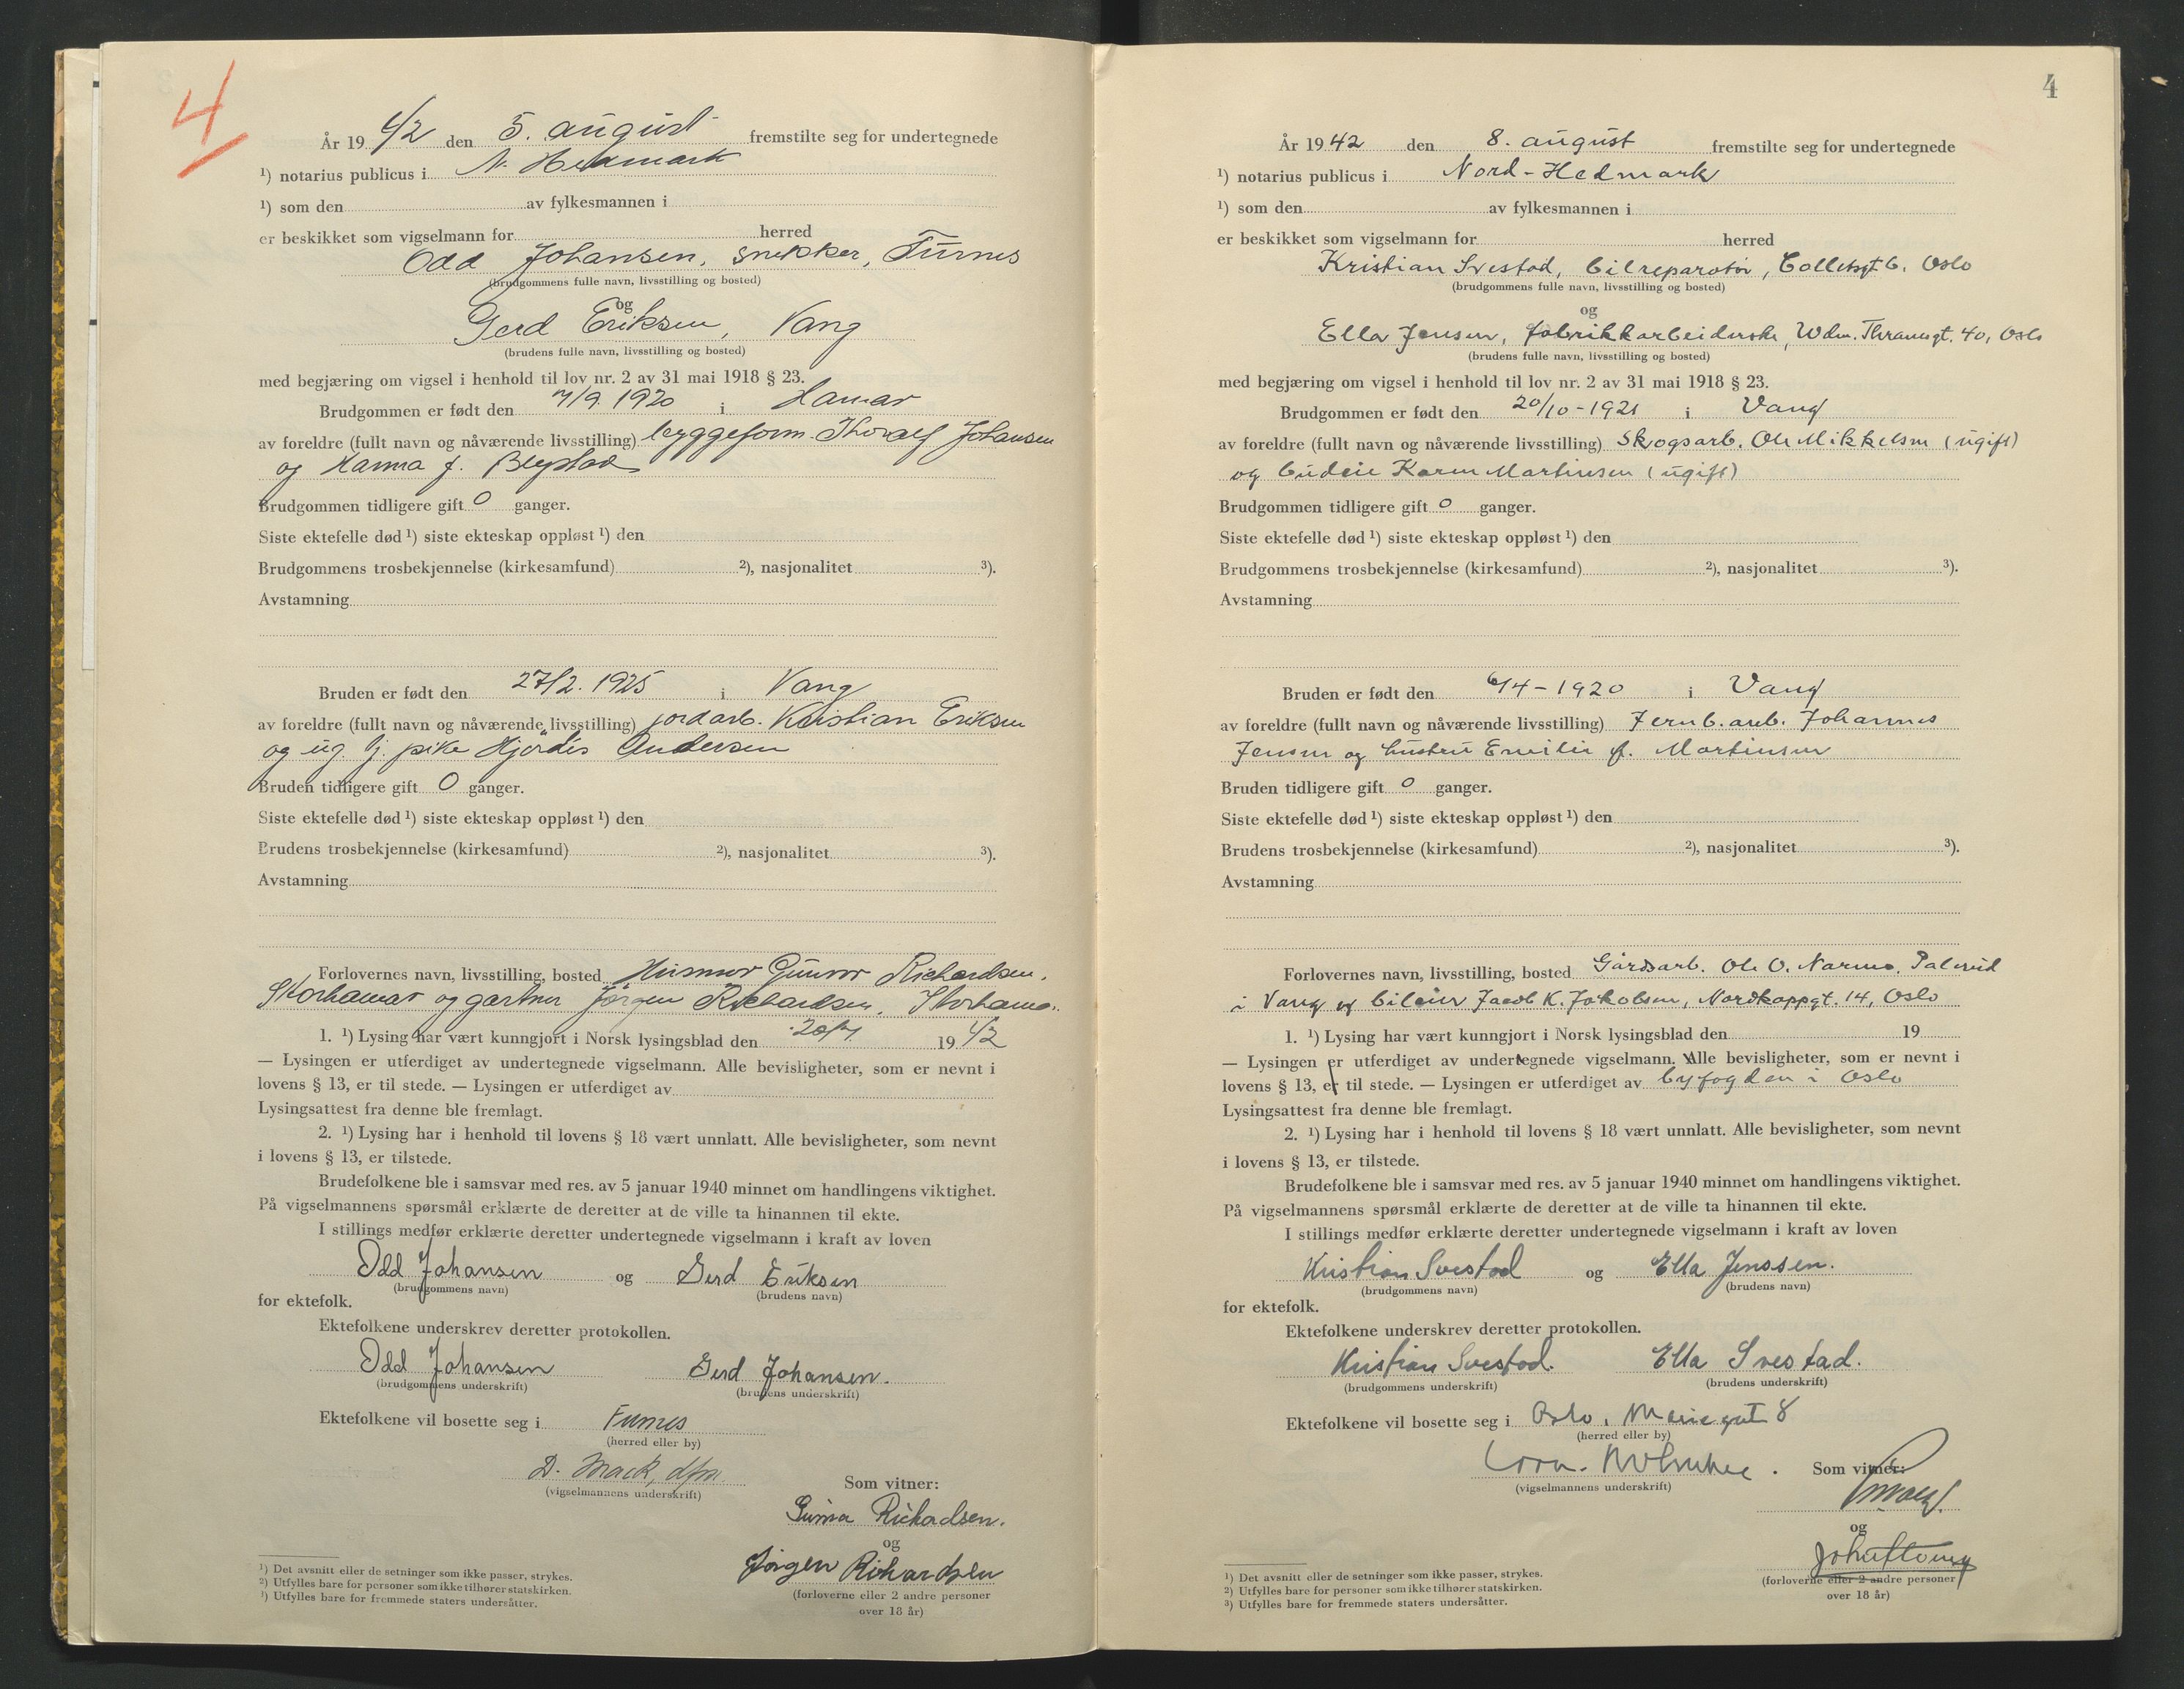 4
År 1942 den 5. august fremstilte seg for undertegnede
¹) notarius publicus i N. Hedmark
¹) som den av fylkesmannen i
er beskikket som vigselmann for herred
Odd Johansen, snekker, Furnes
(brudgommens fulle navn, livsstilling og bosted)
og
Gerd Eriksen, Vang
(brudens fulle navn, livsstilling og bosted)
med begjæring om vigsel i henhold til lov nr. 2 av 31 mai 1918 § 23.
Brudgommen er født den 7/9. 1920 i Hamar
av foreldre (fullt navn og nåværende livsstilling) byggeform. Thoralf Johansen
og Hanna f.
Brudgommen tidligere gift 0 ganger.
Siste ektefelle død ¹) siste ekteskap oppløst ¹) den
Brudgommens trosbekjennelse (kirkesamfund) ²), nasjonalitet ³).
Avstamning
Bruden er født den 27/2. 1925 i Vang
av foreldre (fullt navn og nåværende livsstilling) jordarb. Kristian Eriksen
og ug. tj. pike Hjördis Andersen
Bruden tidligere gift 0 ganger.
Siste ektefelle død ¹) siste ekteskap oppløst ¹) den
Brudens trosbekjennelse (kirkesamfund) ²), nasjonalitet ³).
Avstamning
Forlovernes navn, livsstilling, bosted Husmor Gunvor Richardsen,
Storhamar og gartner Jørgen Richardsen, Storhamar.
1. ¹) Lysing har vært kunngjort i Norsk lysingsblad den 20/7. 1942
— Lysingen er utferdiget av undertegnede vigselmann. Alle bevisligheter, som er nevnt i
lovens § 13, er til stede. — Lysingen er utferdiget av
Lysingsattest fra denne ble fremlagt.
2. ¹) Lysing har i henhold til lovens § 18 vært unnlatt. Alle bevisligheter, som nevnt
i lovens § 13, er tilstede.
Brudefolkene ble i samsvar med res. av 5 januar 1940 minnet om handlingens viktighet.
På vigselmannens spørsmål erklærte de deretter at de ville ta hinannen til ekte.
I stillings medfør erklærte deretter undertegnede vigselmann i kraft av loven
Odd Johansen og Gerd Eriksen
(brudgommens navn) (brudens navn)
for ektefolk.
Ektefolkene underskrev deretter protokollen.
Odd Johansen Gerd Johansen.
(brudgommens underskrift) (brudens underskrift)
Ektefolkene vil bosette seg i Furnes
(herred eller by)
D. Mack, dfm.
(vigselmannens underskrift)
Som vitner:
Richardsen.
og
Jørgen Richardsen
(forloverne eller 2 andre personer
over 18 år)
¹) Det avsnitt eller de setninger som ikke passer, strykes.
²) Utfylles bare for personer som ikke tilhører statskirken.
³) Utfylles bare for fremmede staters undersåtter.
4
År 1942 den 8. august fremstilte seg for undertegnede
¹) notarius publicus i Nord-Hedmark
¹) som den av fylkesmannen i
er beskikket som vigselmann for herred
Kristian Svestad, bilreparatør, Colletsgt 6. Oslo
(brudgommens fulle navn, livsstilling og bosted)
og
Ella Jensen, fabrikkarbeiderske, Wdm. Thranesgt. 40, Oslo
(brudens fulle navn, livsstilling og bosted)
med begjæring om vigsel i henhold til lov nr. 2 av 31 mai 1918 § 23.
Brudgommen er født den 20/10-1921 i Vang
av foreldre (fullt navn og nåværende livsstilling) Skogsarb. Ole Mikkelsen (ugift)
og budeie Karen Martinsen (ugift)
Brudgommen tidligere gift 0 ganger.
Siste ektefelle død ¹) siste ekteskap oppløst ¹) den
Brudgommens trosbekjennelse (kirkesamfund) ²), nasjonalitet ³).
Avstamning
Bruden er født den 6/4-1920 i Vang
av foreldre (fullt navn og nåværende livsstilling) Jernb.arb. Johannes
Jensen og hustru Emilie f. Martinsen
Bruden tidligere gift 0 ganger.
Siste ektefelle død ¹) siste ekteskap oppløst ¹) den
Brudens trosbekjennelse (kirkesamfund) ²), nasjonalitet ³).
Avstamning
Forlovernes navn, livsstilling, bosted Gårdsarb. Ole O. Narmo,
i Vang og bileier Jacob K. Jakobsen, Nordkappgt. 14, Oslo
1. ¹) Lysing har vært kunngjort i Norsk lysingsblad den 19
— Lysingen er utferdiget av undertegnede vigselmann. Alle bevisligheter, som er nevnt i
lovens § 13, er til stede. — Lysingen er utferdiget av byfogden i Oslo
Lysingsattest fra denne ble fremlagt.
2. ¹) Lysing har i henhold til lovens § 18 vært unnlatt. Alle bevisligheter, som nevnt
i lovens § 13, er tilstede.
Brudefolkene ble i samsvar med res. av 5 januar 1940 minnet om handlingens viktighet.
På vigselmannens spørsmål erklærte de deretter at de ville ta hinannen til ekte.
I stillings medfør erklærte deretter undertegnede vigselmann i kraft av loven
Kristian Svestad og Ella Jenssen.
(brudgommens navn) (brudens navn)
for ektefolk.
Ektefolkene underskrev deretter protokollen.
Kristian Svestad. Ella Svestad.
(brudgommens underskrift) (brudens underskrift)
Ektefolkene vil bosette seg i Oslo, 8
(herred eller by)
(vigselmannens underskrift)
Som vitner:
og
(forloverne eller 2 andre personer
over 18 år)
¹) Det avsnitt eller de setninger som ikke passer, strykes.
²) Utfylles bare for personer som ikke tilhører statskirken.
³) Utfylles bare for fremmede staters undersåtter.